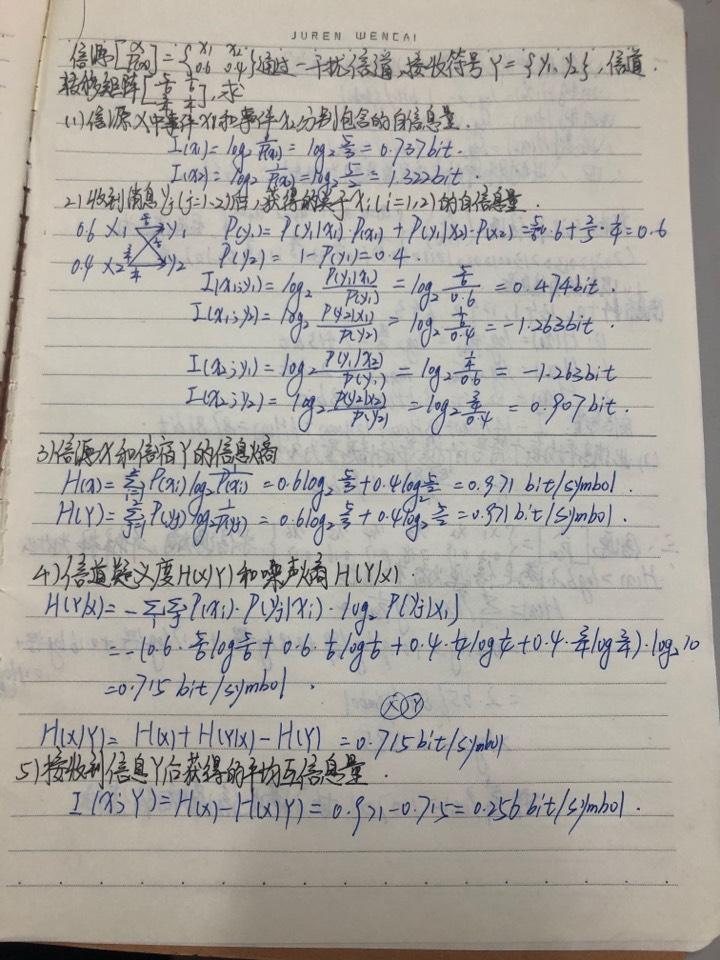 JUREN WENCAI
信源[X P(X)]={x₁ x₂ 0.6 0.4}通过一干扰信道,接收符号Y={y₁,y₂},信道
转移矩阵[5/6 1/6 1/4 3/4],求
(1)信源X中事件x₁和事件x₂分别包含的自信息量.
I(x₁)=log₂ 1/P(x₁)=log₂ 5/3=0.737bit.
I(x₂)=log₂ 1/P(x₂)=log₂ 5/2=1.322bit.
2)收到消息yⱼ(j=1,2)后,获得的关于xᵢ(i=1,2)的自信息量.
0.6 x₁ y₁ P(y₁)=P(y₁|x₁)·P(x₁)+P(y₁|x₂)·P(x₂)=5/6·0.6+2/5·1/4=0.6
0.4 x₂ y₂ P(y₂)=1-P(y₁)=0.4.
I(x₁;y₁)=log₂ P(y₁|x₁)/P(y₁)=log₂ (5/6)/0.6=0.474bit.
I(x₁;y₂)=log₂ P(y₂|x₁)/P(y₂)=log₂ (1/6)/0.4=-1.263bit.
I(x₂;y₁)=log₂ P(y₁|x₂)/P(y₁)=log₂ (1/4)/0.6=-1.263bit
I(x₂;y₂)=log₂ P(y₂|x₂)/P(y₂)=log₂ (3/4)/0.4=0.907bit.
3)信源X和信宿Y的信息熵
H(X)=Σ P(xᵢ)log₂ 1/P(xᵢ)=0.6log₂ 5/3+0.4log₂ 5/2=0.971 bit/symbol.
H(Y)=Σ P(yⱼ)log₂ 1/P(yⱼ)=0.6log₂ 5/3+0.4log₂ 5/2=0.971 bit/symbol.
4)信道疑义度H(X|Y)和噪声熵H(Y|X).
H(Y|X)=-ΣΣP(xᵢ)·P(yⱼ|xᵢ)·log₂ P(yⱼ|xᵢ)
=-(0.6·5/6log5/6+0.6·1/6log1/6+0.4·1/4log1/4+0.4·3/4log3/4)·log₂10
=0.715 bit/symbol.
X Y
H(X|Y)=H(X)+H(Y|X)-H(Y)=0.715bit/symbol
5)接收到信息Y后获得的平均互信息量.
I(X;Y)=H(X)-H(X|Y)=0.971-0.715=0.256 bit/symbol.